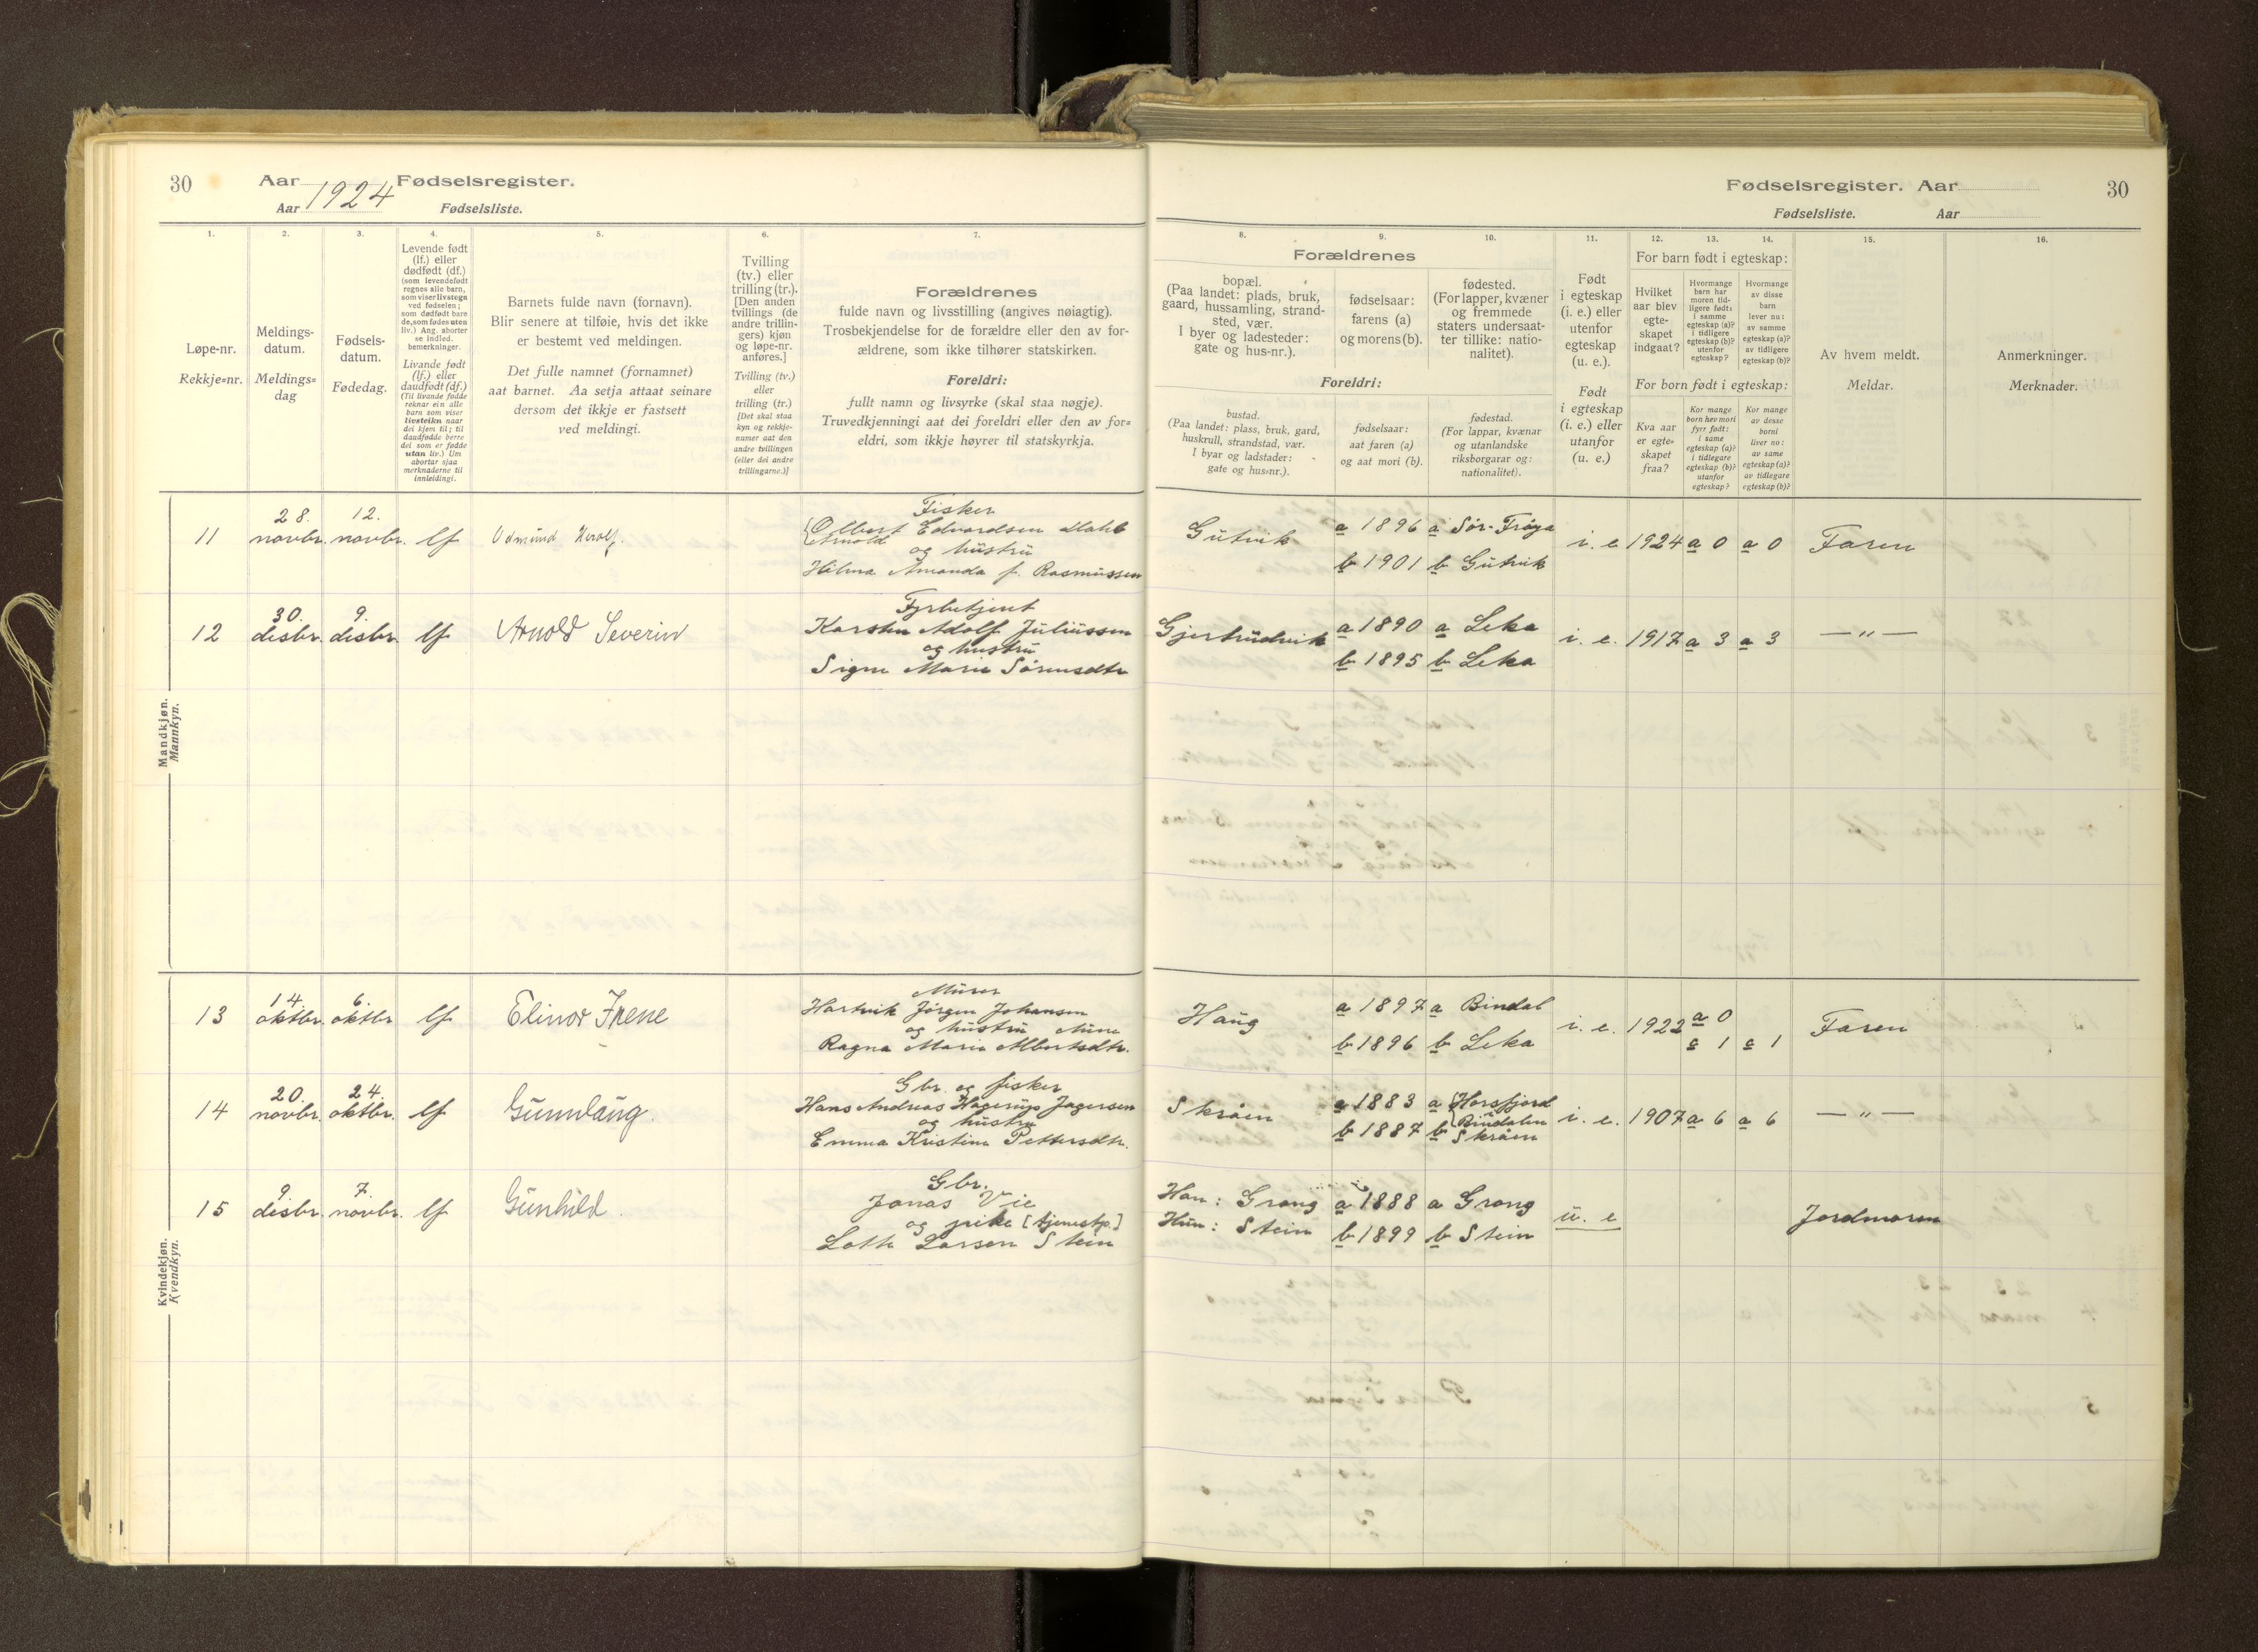 30
Aar 1924 Fødselsregister.
Aar
Fødselsliste.
1.
2.
3.
4.
5.
6.
7.
Løpe-nr.
Rekkje=nr.
Meldings-
datum.
Meldings=
dag
Fødsels-
datum.
Fødedag.
Levende født
(lf.) eller
dødfødt (df.)
(som levendefødt
regnes alle barn,
som viser livstegn
ved fødselen;
som dødfødt bare
de, som fødes uten
liv.) Ang. aborter
se indled.
bemerkninger.
Livande født
(lf.) eller
daudfødt (df.)
(Til livande fødde
reknar ein alle
barn som viser
livsteikn naar
dei kjem til; til
daudfødde berre
dei som er fødde
utan liv.) Um
abortar sjaa
merknaderne til
innleidingi.
Barnets fulde navn (fornavn).
Blir senere at tilføie, hvis det ikke
er bestemt ved meldingen.
Det fulle namnet (fornamnet)
aat barnet. Aa setja attaat seinare
dersom det ikkje er fastsett
ved meldingi.
Tvilling
(tv.) eller
trilling (tr.).
[Den anden
tvillings (de
andre trillin-
gers) kjøn
og løpe-nr.
anføres.]
Tvilling (tv.)
eller
trilling (tr.)
[Det skal staa
kyn og rekkje-
numer aat den
andre tvillingen
(eller dei andre
trillingarne.)]
Forældrenes
fulde navn og livsstilling (angives nøiagtig).
Trosbekjendelse for de forældre eller den av for-
ældrene, som ikke tilhører statskirken.
Foreldri:
fullt namn og livsyrke (skal staa nøgje).
Truvedkjenningi aat dei foreldri eller den av for=
eldri, som ikkje høyrer til statskyrkja.
Fødselsregister. Aar
30
Fødselsliste.
Aar
8.
9.
10.
11.
12.
13.
14.
15.
16.
Forældrenes
bopæl.
(Paa landet: plads, bruk,
gaard, hussamling, strand-
sted, vær.
I byer og ladesteder:
gate og hus-nr.).
fødselsaar:
farens (a)
og morens (b).
fødested.
(For lapper, kvæner
og fremmede
staters undersaat-
ter tillike: natio-
nalitet).
Foreldri:
bustad.
(Paa landet: plass, bruk, gard,
huskrull, strandstad, vær.
I byar og ladstader:
gate og hus=nr.).
fødselsaar:
aat faren (a)
og aat mori (b).
fødestad.
(For lappar, kvænar
og utanlandske
riksborgarar og:
nationalitet).
Født
i egteskap
(i. e.) eller
utenfor
egteskap
(u. e.).
Født
i egteskap
(i. e.) eller
utanfor
(u. e.)
For barn født i egteskap:
Hvilket
aar blev
egte-
skapet
indgaat?
Hvormange
barn har
moren tid-
ligere født:
i samme
egteskap (a)?
i tidligere
egteskap (b)?
utenfor
egteskap?
Hvormange
av disse
barn
lever nu:
av samme
egteskap (a)?
av tidligere
egteskap (b)?
For born født i egteskap:
Kva aar
er egte=
skapet
fraa?
Kor mange
born hev mori
fyrr født:
i same
egteskap (a)?
i tidlegare
egteskap (b)?
utanfor
egteskap?
Kor mange
av desse
borni
liver no:
av same
egteskap (a)?
av tidlegare
egteskap (b)?
Av hvem meldt.
Meldar.
Anmerkninger.
Merknader.
Mandkjøn.
Mannkyn.
11
28.
novbr.
12.
novbr.
lf
Fisker
Albert Edvardsen
Arnold
og hustru
Hilma Amanda f. Rasmussen
Gutvik
a 1896 a Sør-Frøya
b 1901 b Gutvik
i. e 1924 a 0 a 0 Faren
12
30.
desbr.
9.
desbr.
lf
Arnold Severin
Fyrbetjent
Karsten Adolf Juliussen
og hustru
Signe Marie Sørensdtr
Gjertrudvik
a 1890 a Leka
b 1895 b Leka
i. e. 1917 a 3 a 3 — " —
Kvindekjøn.
Kvendkyn.
13
14.
oktbr.
6.
oktbr
lf
Elinor Irene
Murer
Hartvik Jørgen Johansen
og hustru
Ragna Marie Albertsdtr.
Haug
a 1897 a Bindal
b 1896 b Leka
i. e. 1922 a 0
1 1
Faren
14
20.
novbr.
24.
oktbr.
lf
Gunnlaug.
Gbr. og fisker
Hans Andreas Hagerup Jagersen
og hustru
Emma Kristine Pettersdtr.
Skråen
a 1883 a Horsfjord
Bindalen
b 1887 b Skråen
i. e. 1907 a 6 a 6 — " —
15
9.
desbr.
7.
novbr.
lf
Gunhild.
Gbr.
Jonas Vie
og pike [tjenestep.]
Lotte Larsen Stein
Han: Grong a 1888 a Grong
Hun: Stein b 1899 b Stein
u. e
Jordmoren